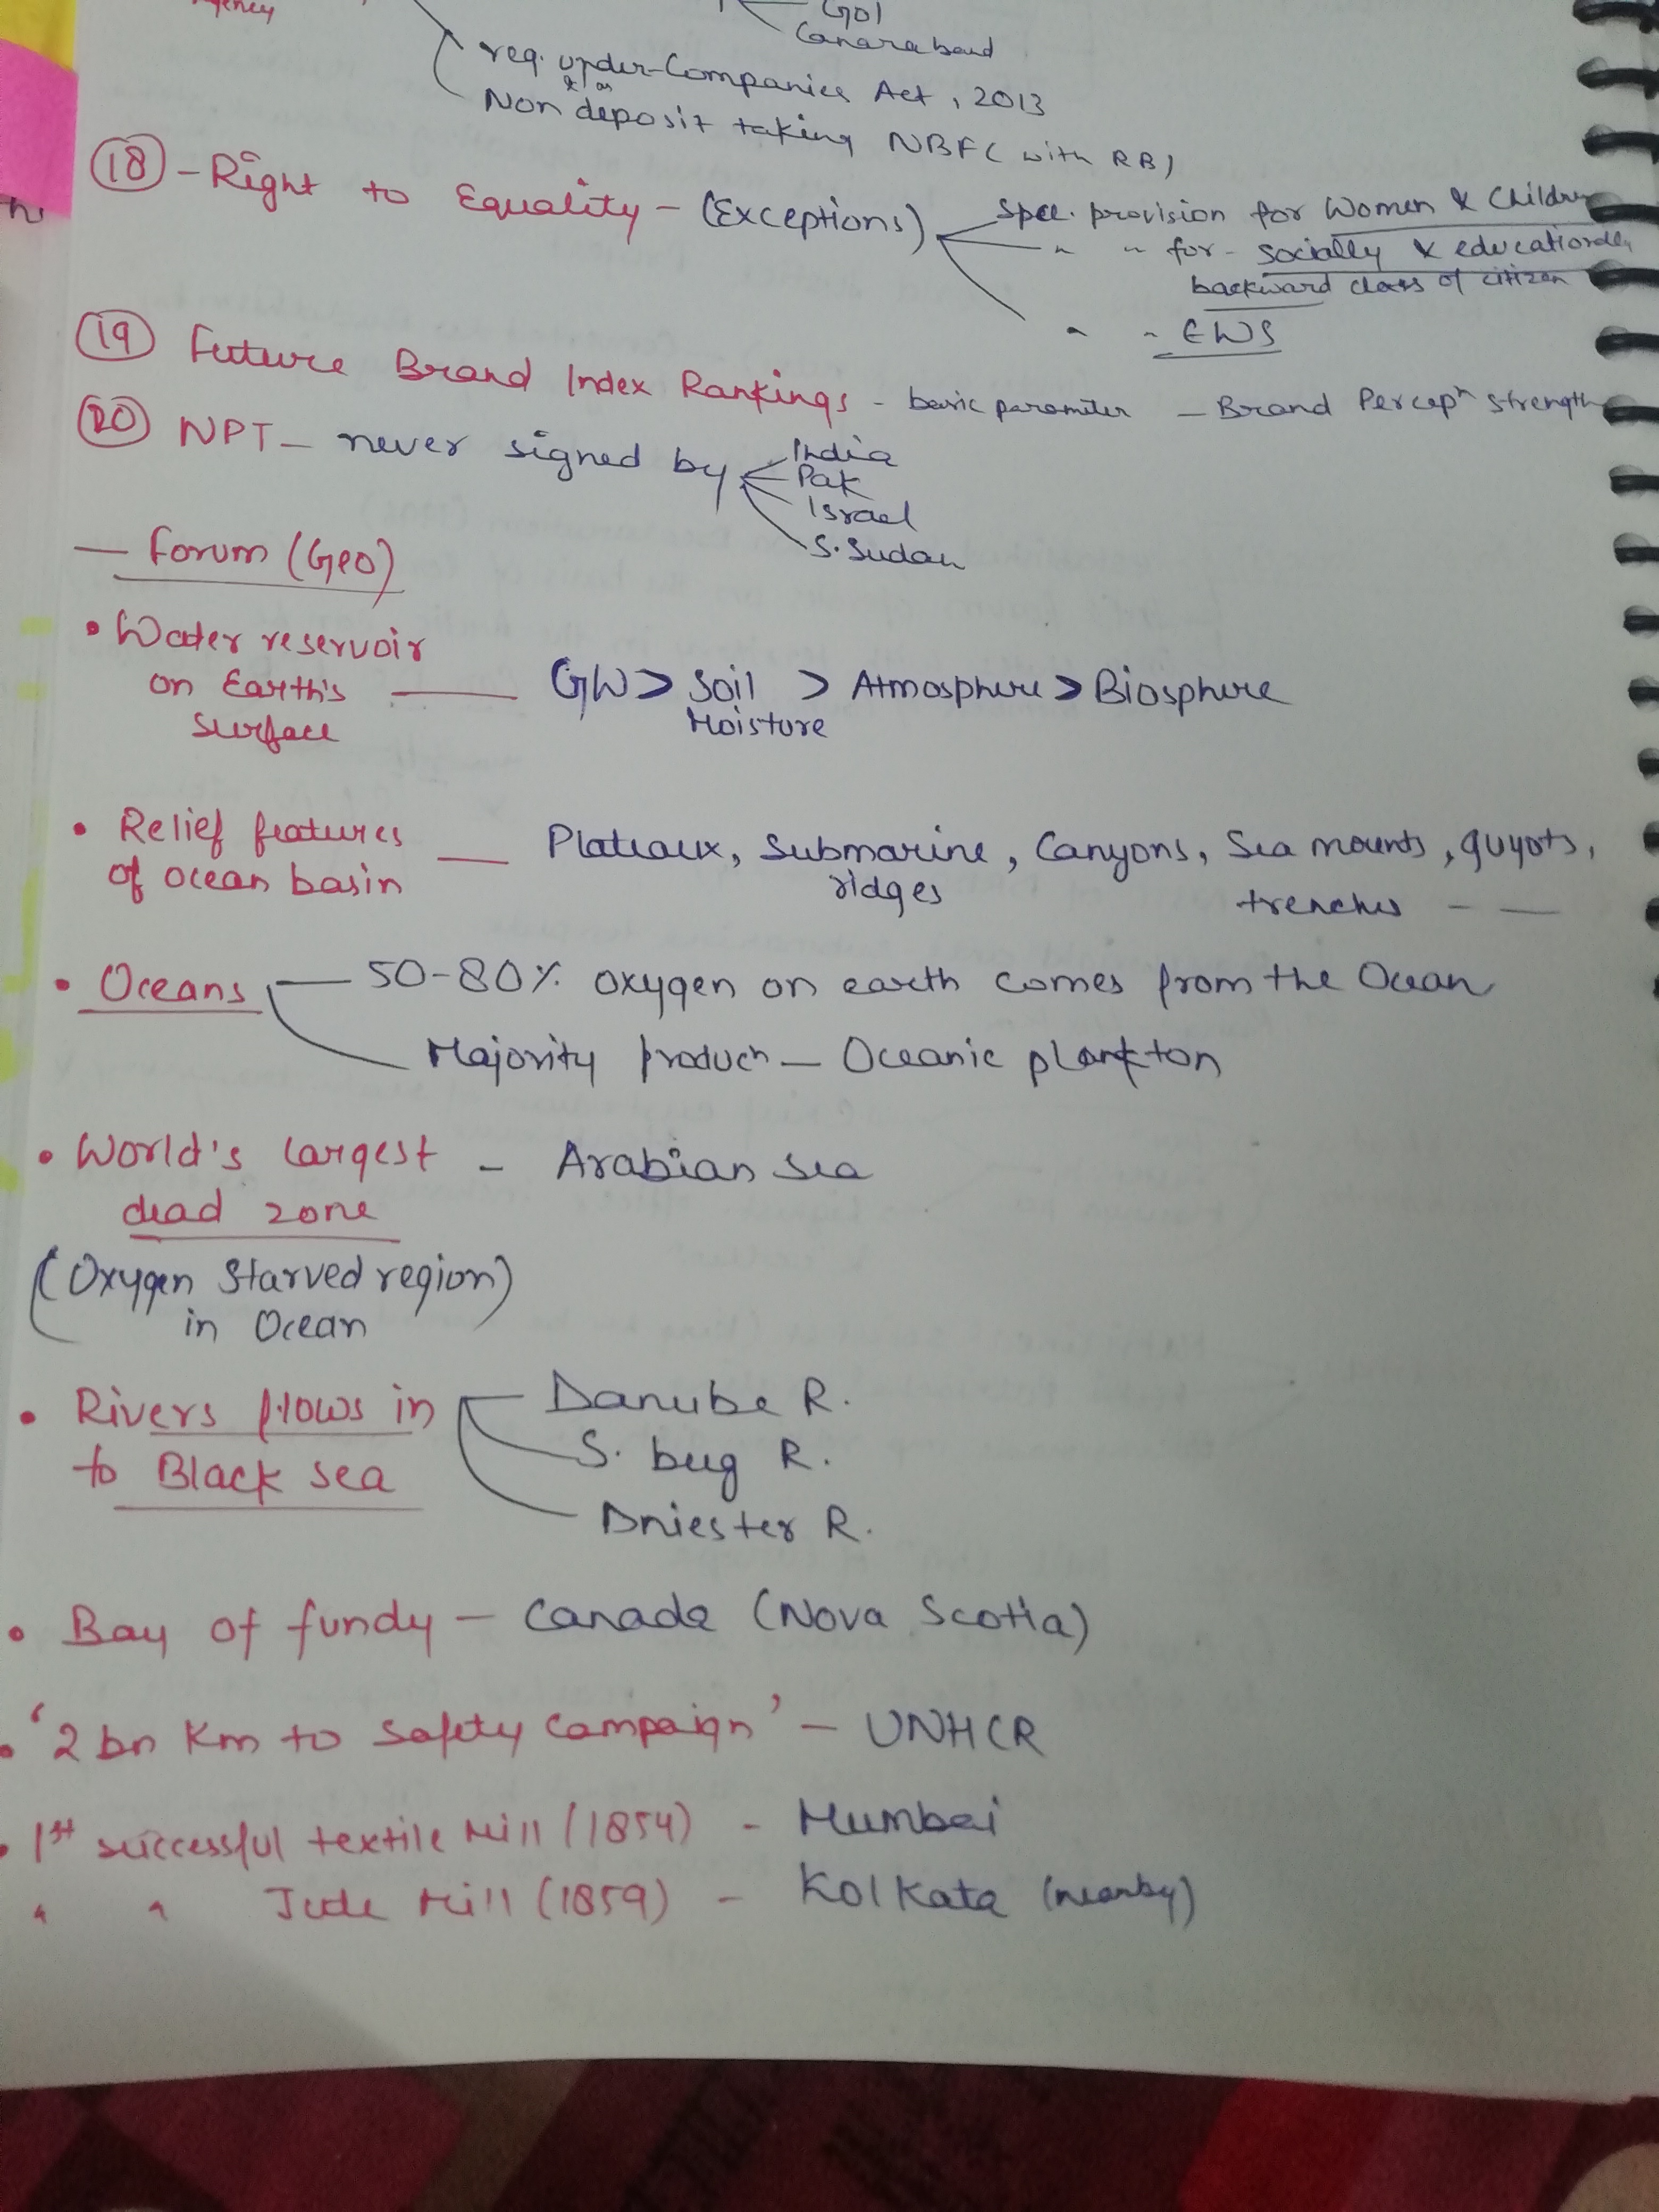 GOI
Canara band
req. under Companies Act, 2013
& as
Non deposit taking NBFC with RBI
(18) - Right to Equality - (Exceptions)
Spec. provision for Women & Children
" " for - socially & educationally
backward class of citizen
" " EWS
(19) Future Brand Index Rankings - basic paramiter - Brand Percepⁿ strength
(20) NPT - never signed by
India
Pak
Israel
S. Sudan
- Forum (Geo)
• Water reservoir
on Earth's
surface
GW > Soil > Atmosphere > Biosphere
Moisture
• Relief features
of ocean basin
- Plateaux, Submarine, Canyons, Sea mounts, guyots,
ridges
trenches - -
• Oceans
50-80% oxygen on earth comes from the Ocean
Majority producⁿ - Oceanic plankton
• World's largest - Arabian sea
dead zone
(Oxygen Starved region)
in Ocean
• Rivers flows in
to Black sea
Danube R.
S. bug R.
Dniester R.
• Bay of fundy - Canada (Nova Scotia)
• '2 bn Km to safety campaign' - UNHCR
• 1st successful textile Mill (1854) - Mumbai
" " Jute Mill (1859) - Kolkata (nearby)